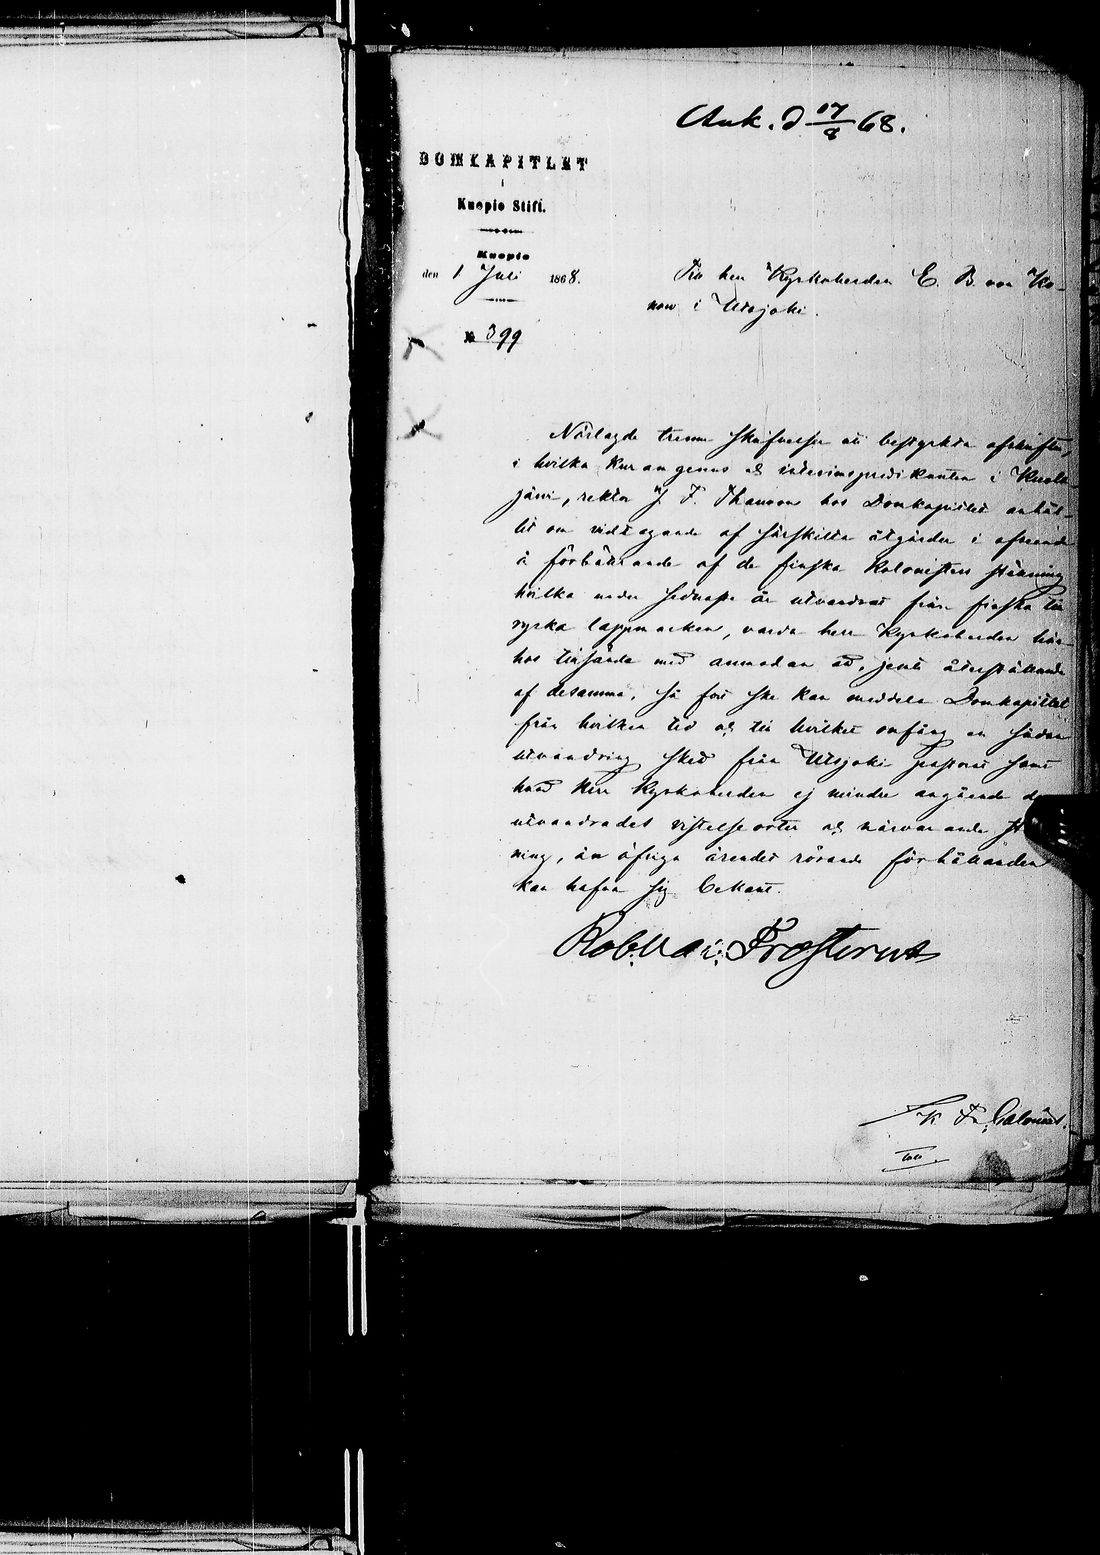 Ank. d 17/8 68.
DOMKAPITLET
i
Kuopio Stift.
Kuopio
den 1 Juli 1868.
№ 399
Till herr Kyrkoherden E. B. von Ko-
now i Utsjoki.
Närlagde trenne skrifvelser uti bestyrkta afskrifter,
i hvilka kur an genus och interimspredikanten i Kuola-
järvi, rektor J. F. Thauvón hos Domkapitlet anhål-
lit om vidtagande af särskilta åtgärder i afseende
å förbättrande af de finska kolonisters ställning
hvilka under sednaste år utvandrat från finska till
ryska lappmarken, varda herr Kyrkoherden här-
hos tillsända med anmodan att, jemte återställande
af desamma, så fort ske kan meddela Domkapitlet
från hvilken tid och till hvilket omfång en sådan
utvandring skett från Utsjoki pastorat samt
hvad Herr Kyrkoherden ej mindre angående de
utvandrades vistelseorter och närvarande ställ-
ning, än öfriga ärendet rörande förhållanden
kan hafva sig bekant.
Robert V. Frosterus